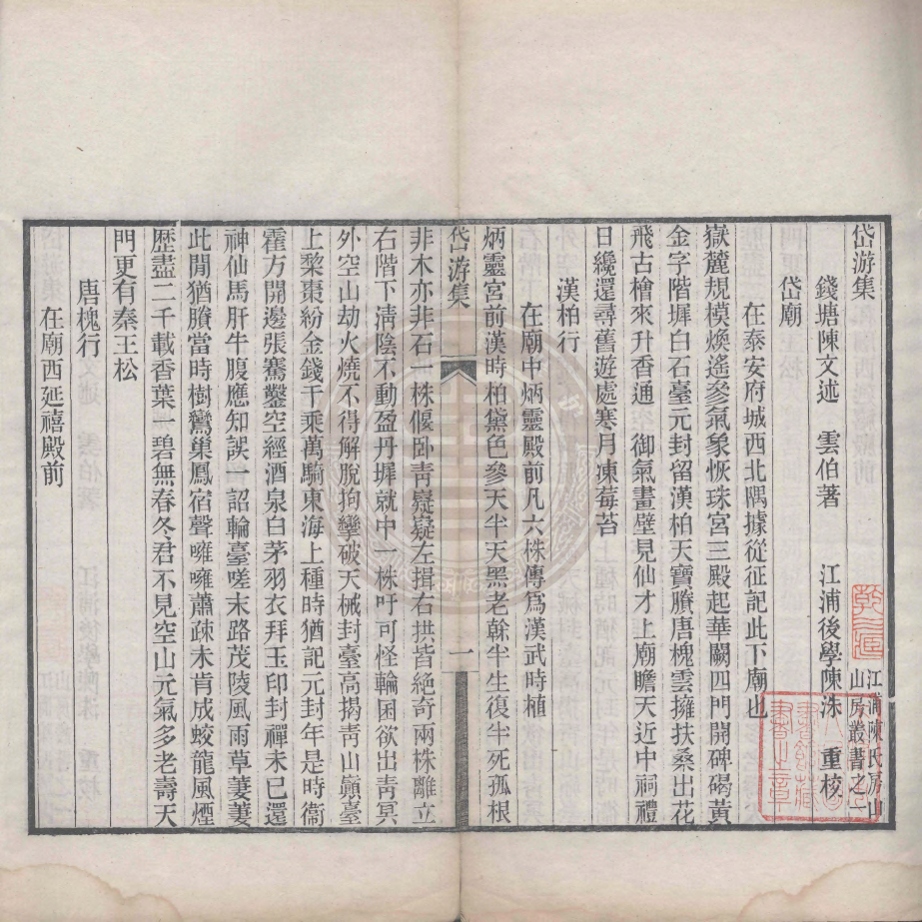 岱游集
江浦陳氏房山
山房叢書之一
錢塘陳文述　雲伯著　江浦後學陳洙　重校
岱廟
在泰安府城西北隅據從征記此下廟也
嶽麓規模煥遙參氣象恢珠宮三殿起華闕四門開碑碣黃
金字階墀白石臺元封留漢柏天寶賸唐槐雲擁扶桑出花
飛古檜來升香通　御氣畫壁見仙才上廟瞻天近中祠禮
日纔還尋舊遊處寒月凍莓苔
漢柏行
在廟中炳靈殿前凡六株傳爲漢武時植
炳靈宮前漢時柏黛色參天半天黑老榦半生復半死孤根
岱游集
一
非木亦非石一株偃卧靑嶷嶷左揖右拱皆絕奇兩株離立
右階下淸陰不動盈丹墀就中一株吁可怪輪囷欲出靑冥
外空山劫火燒不得解脫拘攣破天械封臺高揭靑山巔臺
上棃棗紛金錢千乘萬騎東海上種時猶記元封年是時衞
霍方開邊張騫鑿空經酒泉白茅羽衣拜玉印封禪未已還
神仙馬肝牛腹應知誤一詔輪臺嗟末路茂陵風雨草萋萋
此閒猶賸當時樹鸞巢鳳宿聲噰噰蕭疎未肯成蛟龍風煙
歴盡二千載香葉一碧無春冬君不見空山元氣多老壽天
門更有秦王松
唐槐行
在廟西延禧殿前